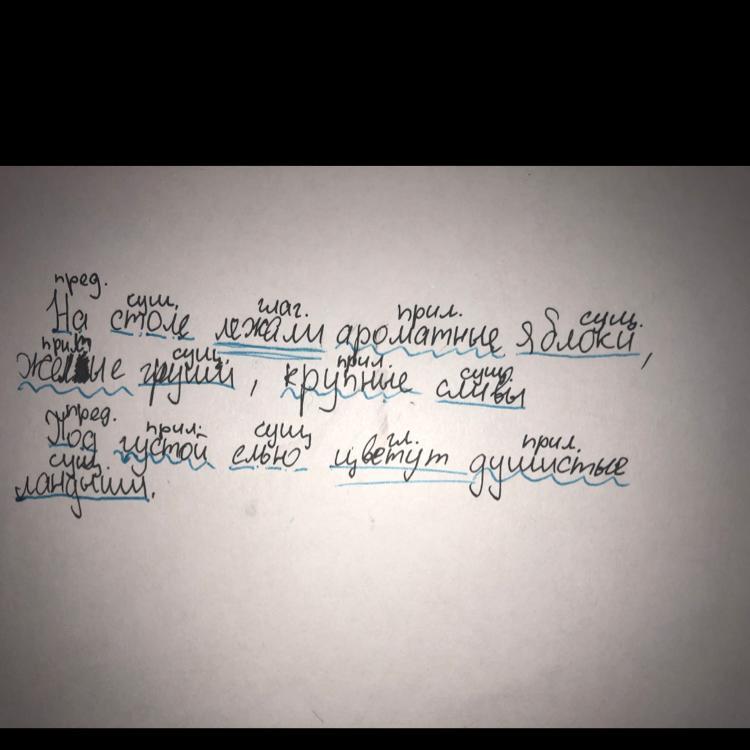 пред. сущ. глаг. прил. сущ.
На столе лежали ароматные яблоки,
прил. сущ. прил. сущ.
груши, крупные сливы
пред. прил. сущ гл. прил.
Под густой елью цветут душистые
сущ.
ландыши.